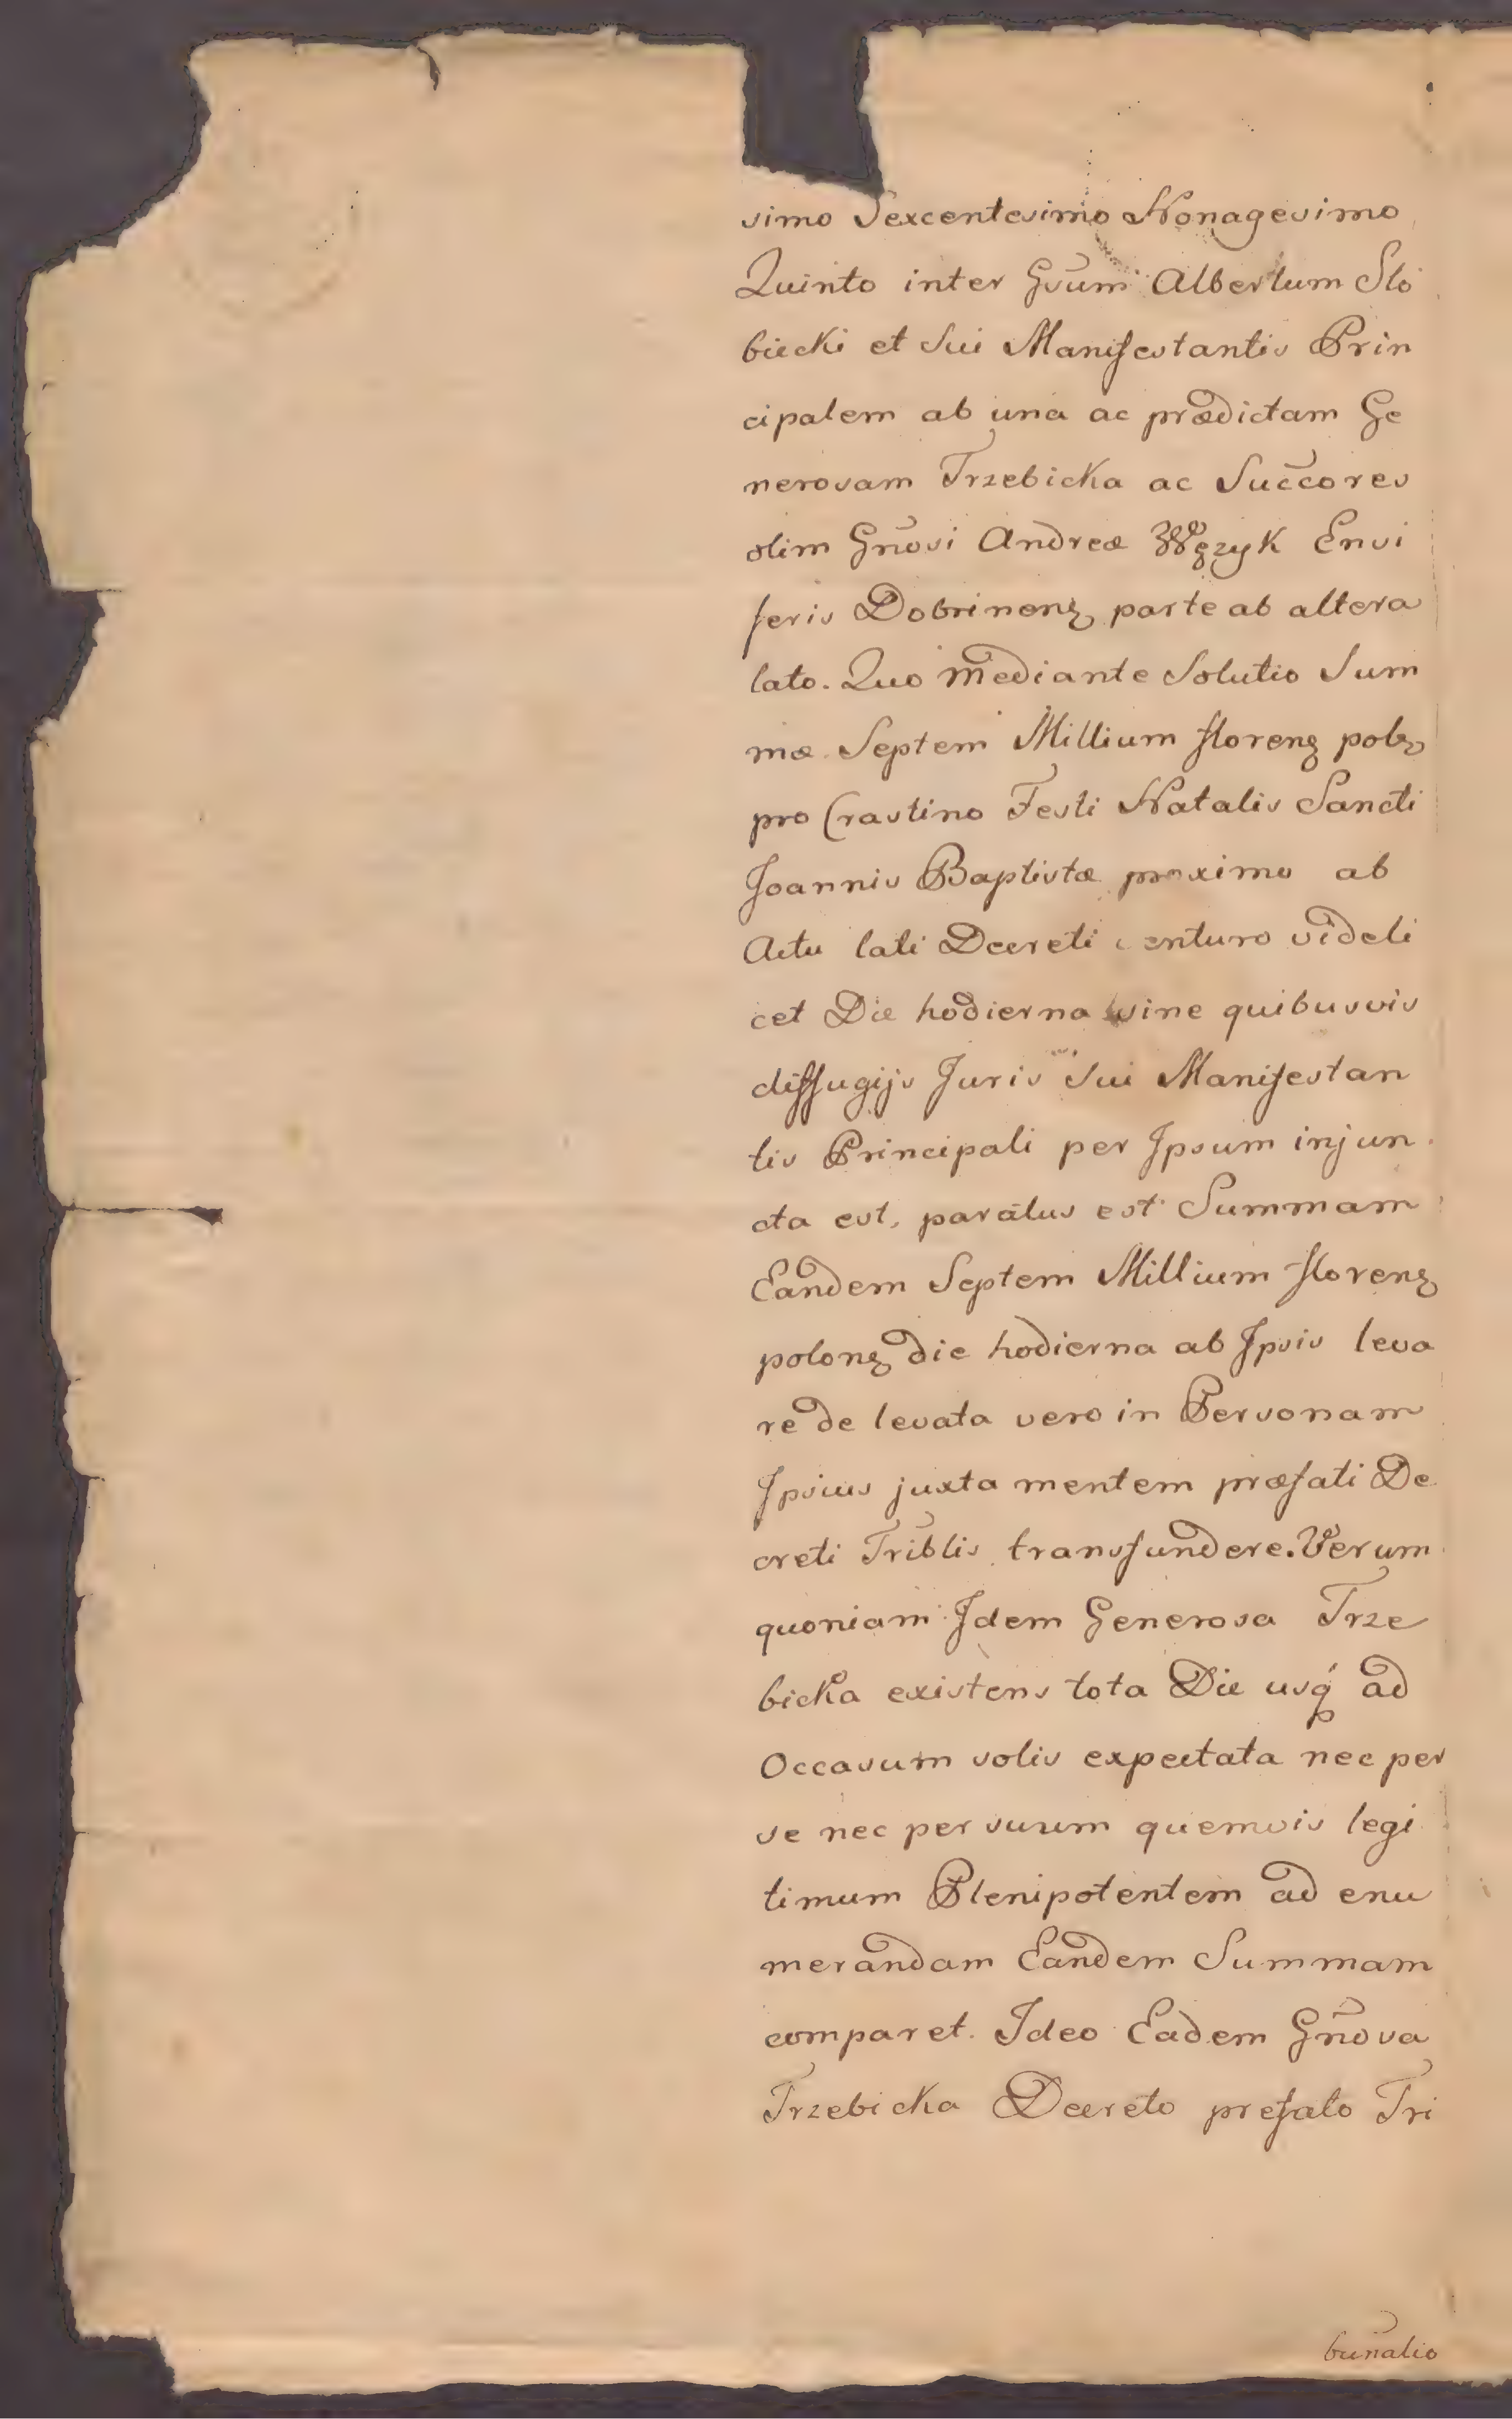 simo Sexcentesimo Nonagesimo
Quinto inter Gsum Albertum Slo
biecki et Sui Manifestantis Prin
cipalem ab una ac prædictam Ge
nerosam Trzebicka ac Succores
olim Gnosi Andreæ Węzyk Ensi
feris Dobrinenꝫ parte ab altera
lato. Quo mediante Solutio Sum
mæ Septem Millium florenꝫ polꝫ
pro Crastino Festi Natalis Sancti
Joannis Baptistæ proximo ab
Actu lati Decreti venturo videli
cet Die hodierna sine quibusvis
diffugijs Juris Sui Manifestan
tis Principali per Ipsum injun
cta est, paratus est Summam
Eandem Septem Millium florenꝫ
polonꝫ die hodierna ab Ipsis leva
re de levata vero in Personam
Ipsius juxta mentem præfati De
creti Triblis transfundere. Verum
quoniam Idem Generosa Trze
bicka existens tota Die usq́ ad
Occasum solis expectata nec per
se nec per suum quemvis legi
timum Plenipotentem ad enu
merandam Eandem Summam
comparet. Ideo Eadem Gnosa
Trzebicka Decreto prefato Tri
bunalio